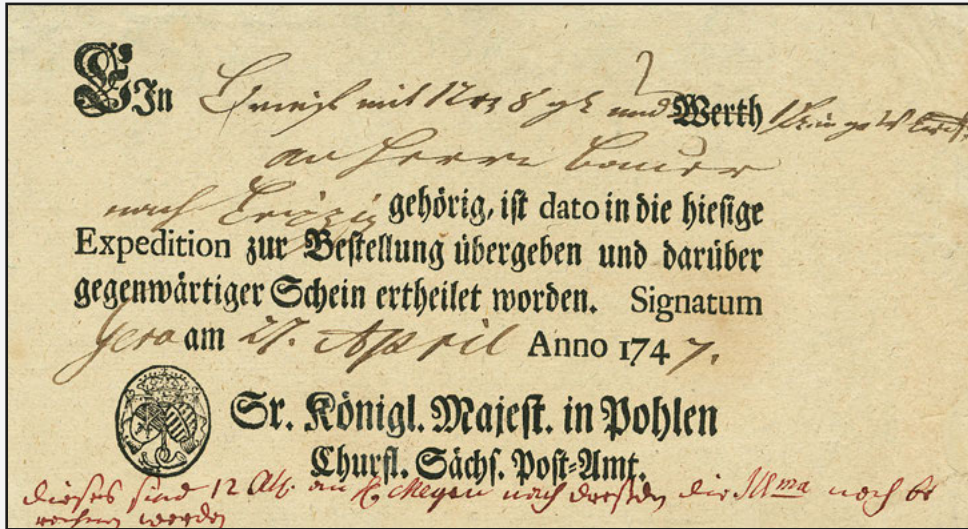 EIn Brieff mit 12 rt 8 gl und Werth
an Herrn Bauer
nach Leipzig gehörig, ist dato in die hiesige
Expedition zur Bestellung übergeben und darüber
gegenwärtiger Schein ertheilet worden. Signatum
Gera am 27. April Anno 1747.
Sr. Königl. Majest. in Pohlen
Churfl. Sächs. Post-Amt.
dieses sind 12 an nach Dresden die noch be
rechnet worden